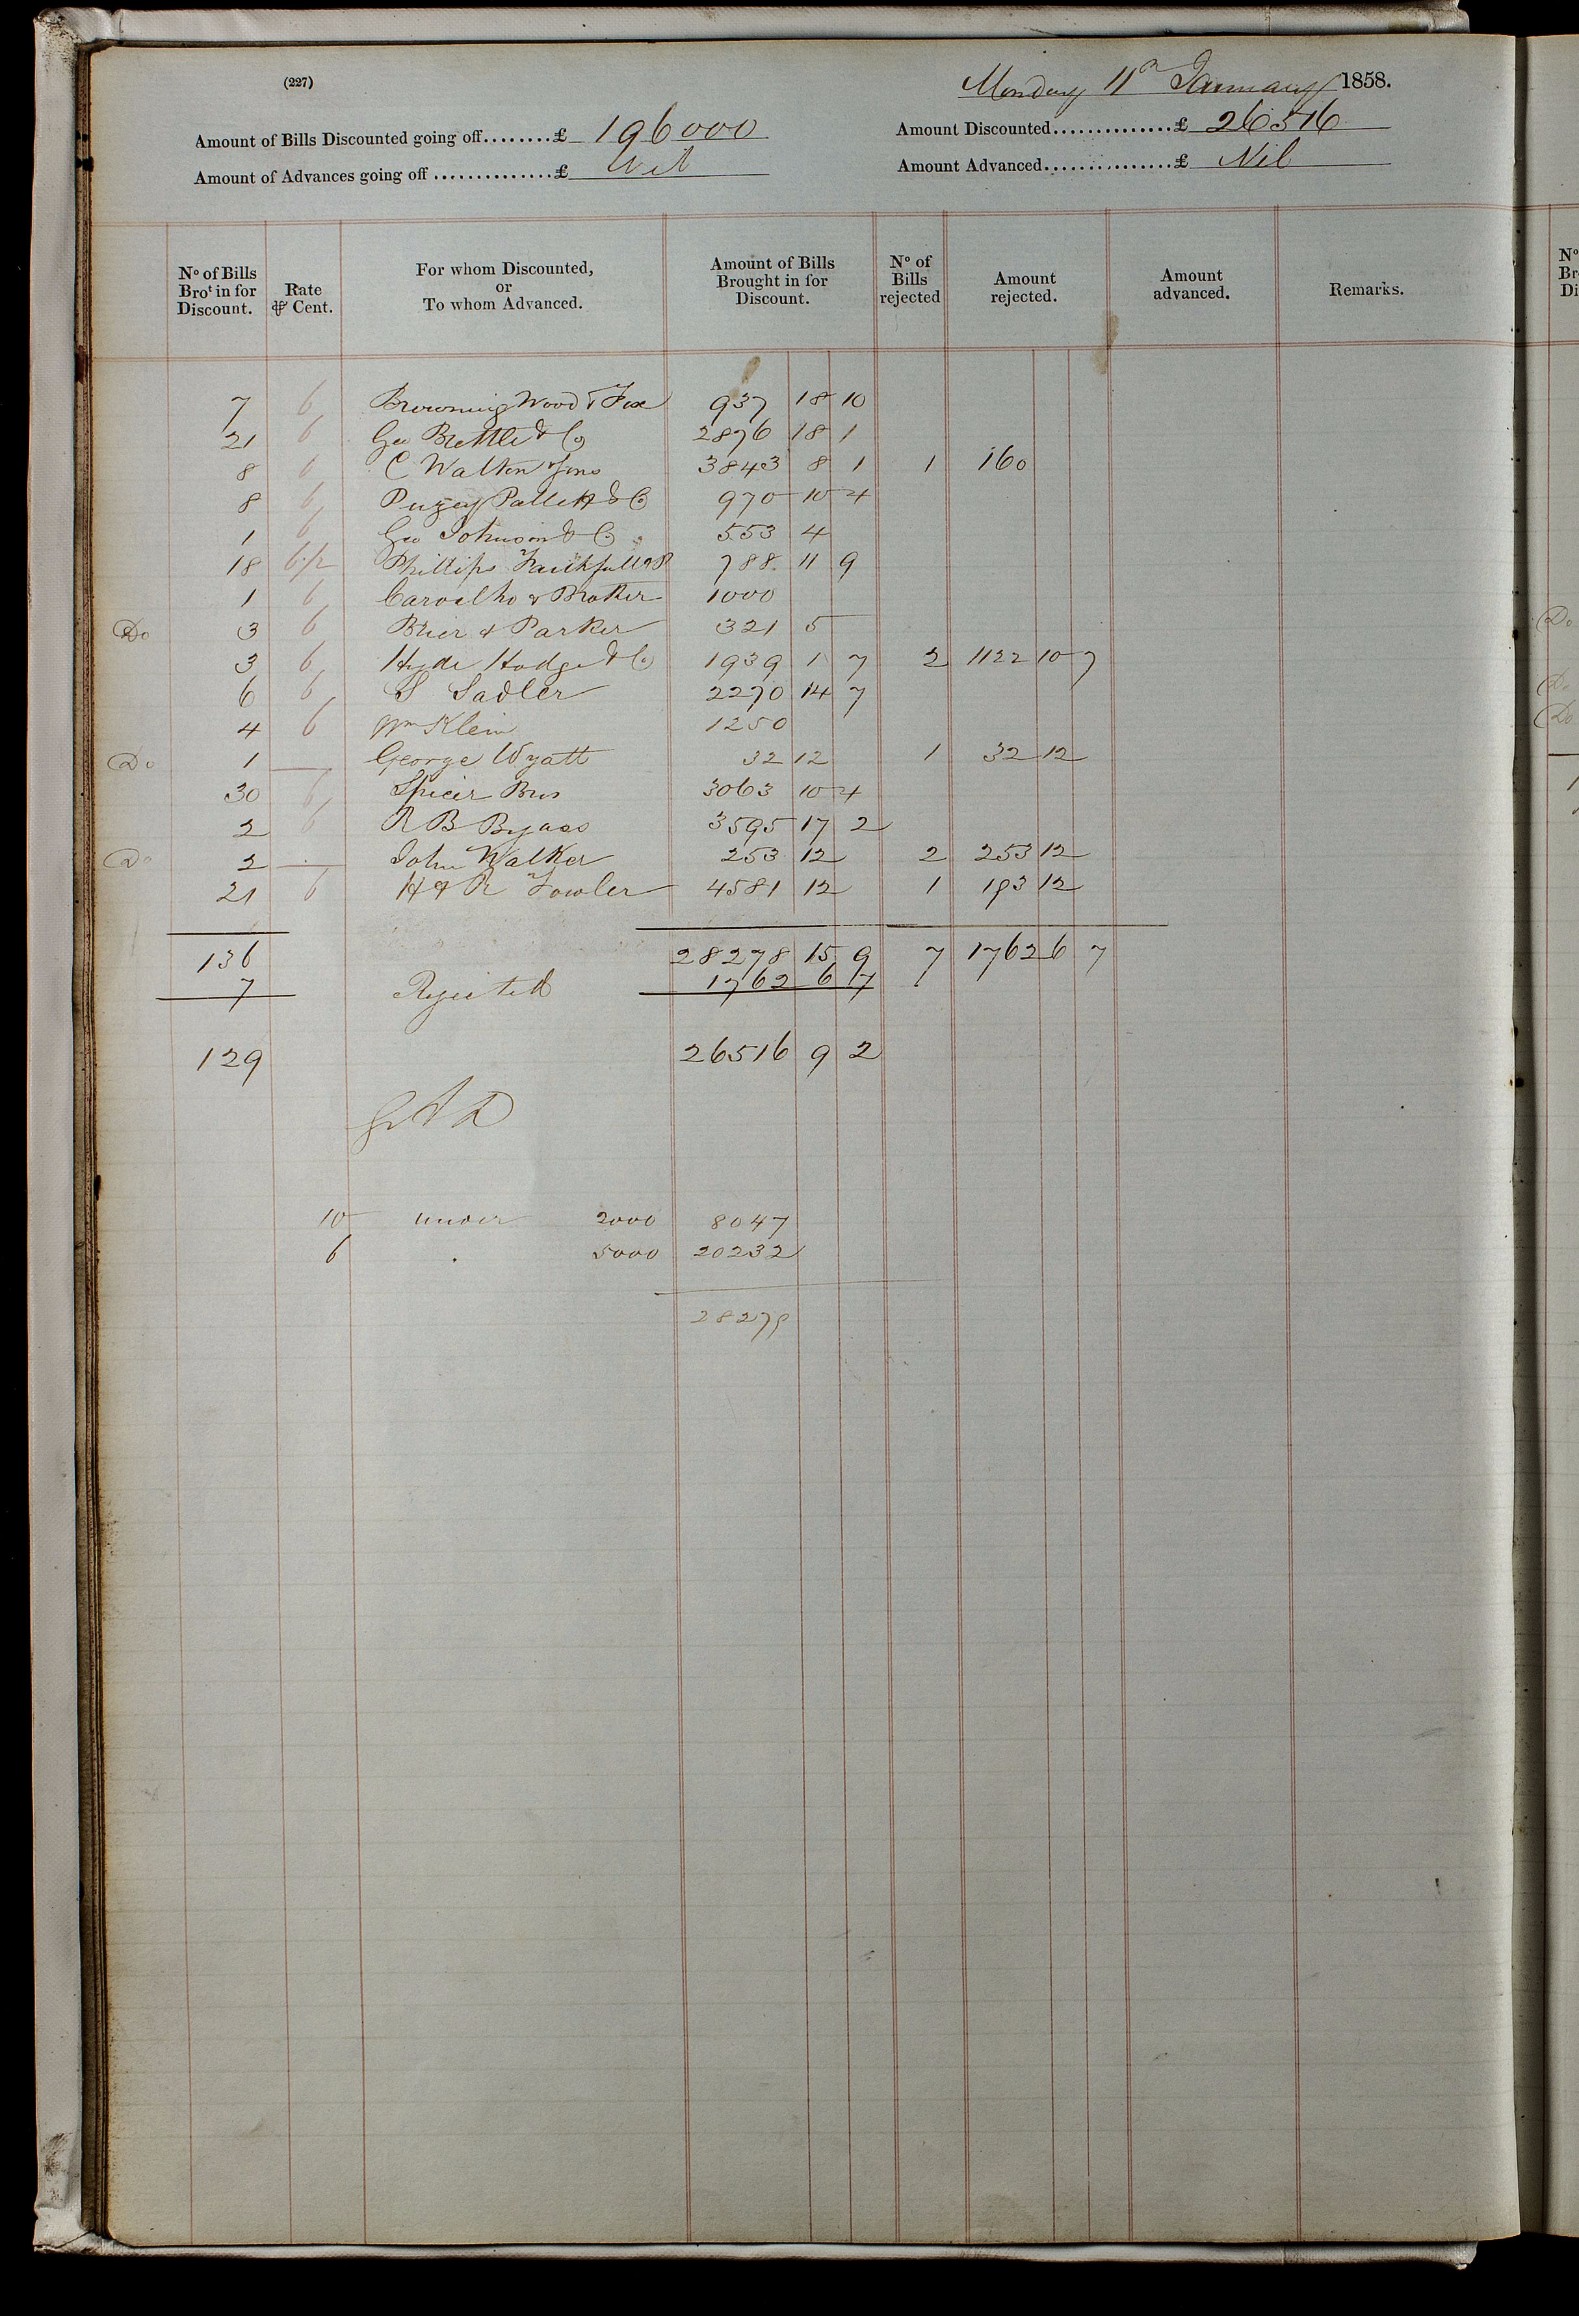 (227)
Monday 11th January 1858.
Amount of Bills Discounted going off........£ 196000
Amount Discounted..............£ 26516
Amount of Advances going off..............£ Nil
Amount Advanced...............£ Nil
No of Bills Brot in for Discount. Rate ⅌ Cent. For whom Discounted, or To whom Advanced. Amount of Bills Brought in for Discount. No of Bills rejected Amount rejected. Amount advanced. Remarks.
7 6 Browning Wood & Fox 937 18 10
21 6 Geo Brettle & Co 2876 18 1
8 6 C Walton & Sons 3843 8 1 1 160
8 6 Puzey Pallett & Co 970 10 4
1 6 Geo Johnson & Co 553 4
18 Phillips Faithfull & P 788 11 9
1 6 Carvalho & Brother 1000
Do 3 6 Brier & Parker 321 5
3 6 Hyde Hodge & Co 1939 1 7 2 1122 10 7
6 6 S Sadler 2270 14 7
4 6 Wm Klein 1250
Do 1 — George Wyatt 32 12 1 32 12
30 6 Spicer Bros 3063 10 4
2 6 R B Byass 3595 17 2
Do 2 — John Walker 253 12 2 253 12
21 6 H & R Fowler 4581 12 1 193 12
136 28278 15 9 7 1762 6 7
7 Rejected 1762 6 7
129 26516 9 2
10 under 2000 8047
6 . 5000 20232
28279
No
Br
Di
Do
Do
Do